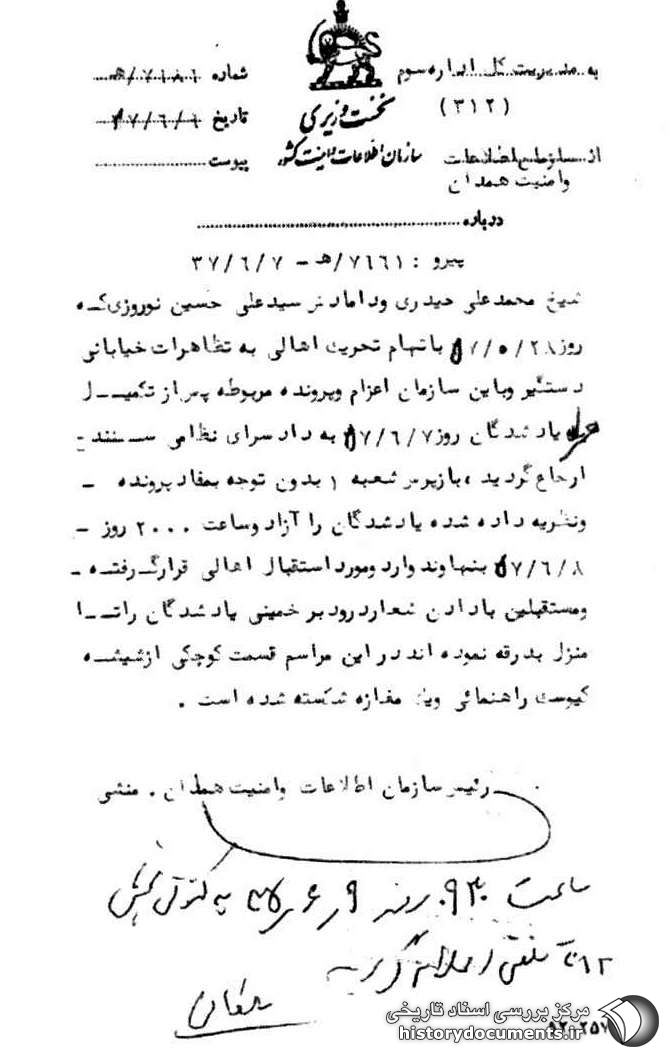 به مدیریت کل اداره سوم
(۳۱۲)
از سازمان اطلاعات
و امنیت همدان
نخست وزیری
سازمان اطلاعات و امنیت کشور
شماره
تاریخ
پیوست
درباره
پیرو : ۷۶۶۱/هـ - ۳۷/۶/۷
شیخ محمدعلی حیدری و دامادش سیدعلی حسین نوروزی که
روز ۵۷/۵/۲۸ باتهام تحریک اهالی به تظاهرات خیابانی
دستگیر و باین سازمان اعزام و پرونده مربوطه پس از تکمیل
یادشدگان روز ۵۷/۶/۷ به دادسرای نظامی سنندج
ارجاع گردید ، بازپرس شعبه ۱ بدون توجه بمفاد پرونده -
ونظریه داده شده یادشدگان را آزاد وساعت ۲۰۰۰ روز -
۵۷/۶/۸ بنهاوند وارد ومورد استقبال اهالی قرار گرفته -
ومستقبلین با دادن شعار درود بر خمینی یادشدگان را تا
منزل بدرقه نموده اند در این مراسم قسمت کوچکی از شیشه
کیوسک راهنمائی ویک مغازه شکسته شده است .
رئیس سازمان اطلاعات و امنیت همدان . منشی
ساعت ۰۹۳۰ روز
تلفنی اعلام گردید
مرکز بررسی اسناد تاریخی
historydocuments.ir